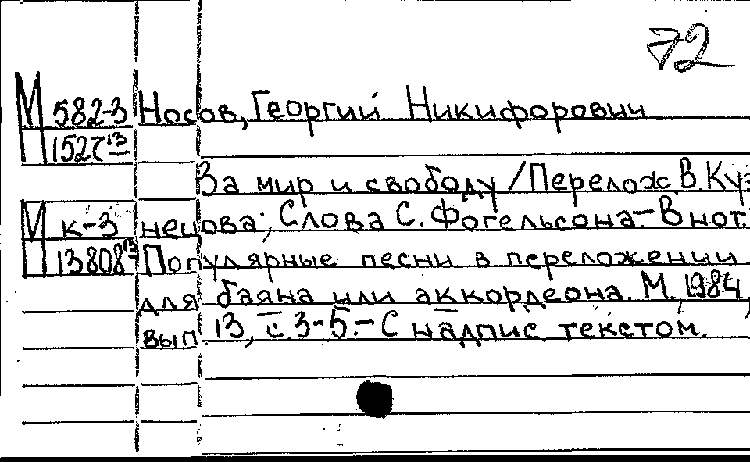 72
М 582-3 Носов, Георгий Никифорович
П 152713
За мир и свободу / Перелож. В. Куз
М к-3 нецова; Слова С. Фогельсона. - В нот.:
П 1380813 Популярные песни в переложении
для баяна или аккордеона. М., 1984,
вып. 13, с. 3-5. - С надпис. текстом.